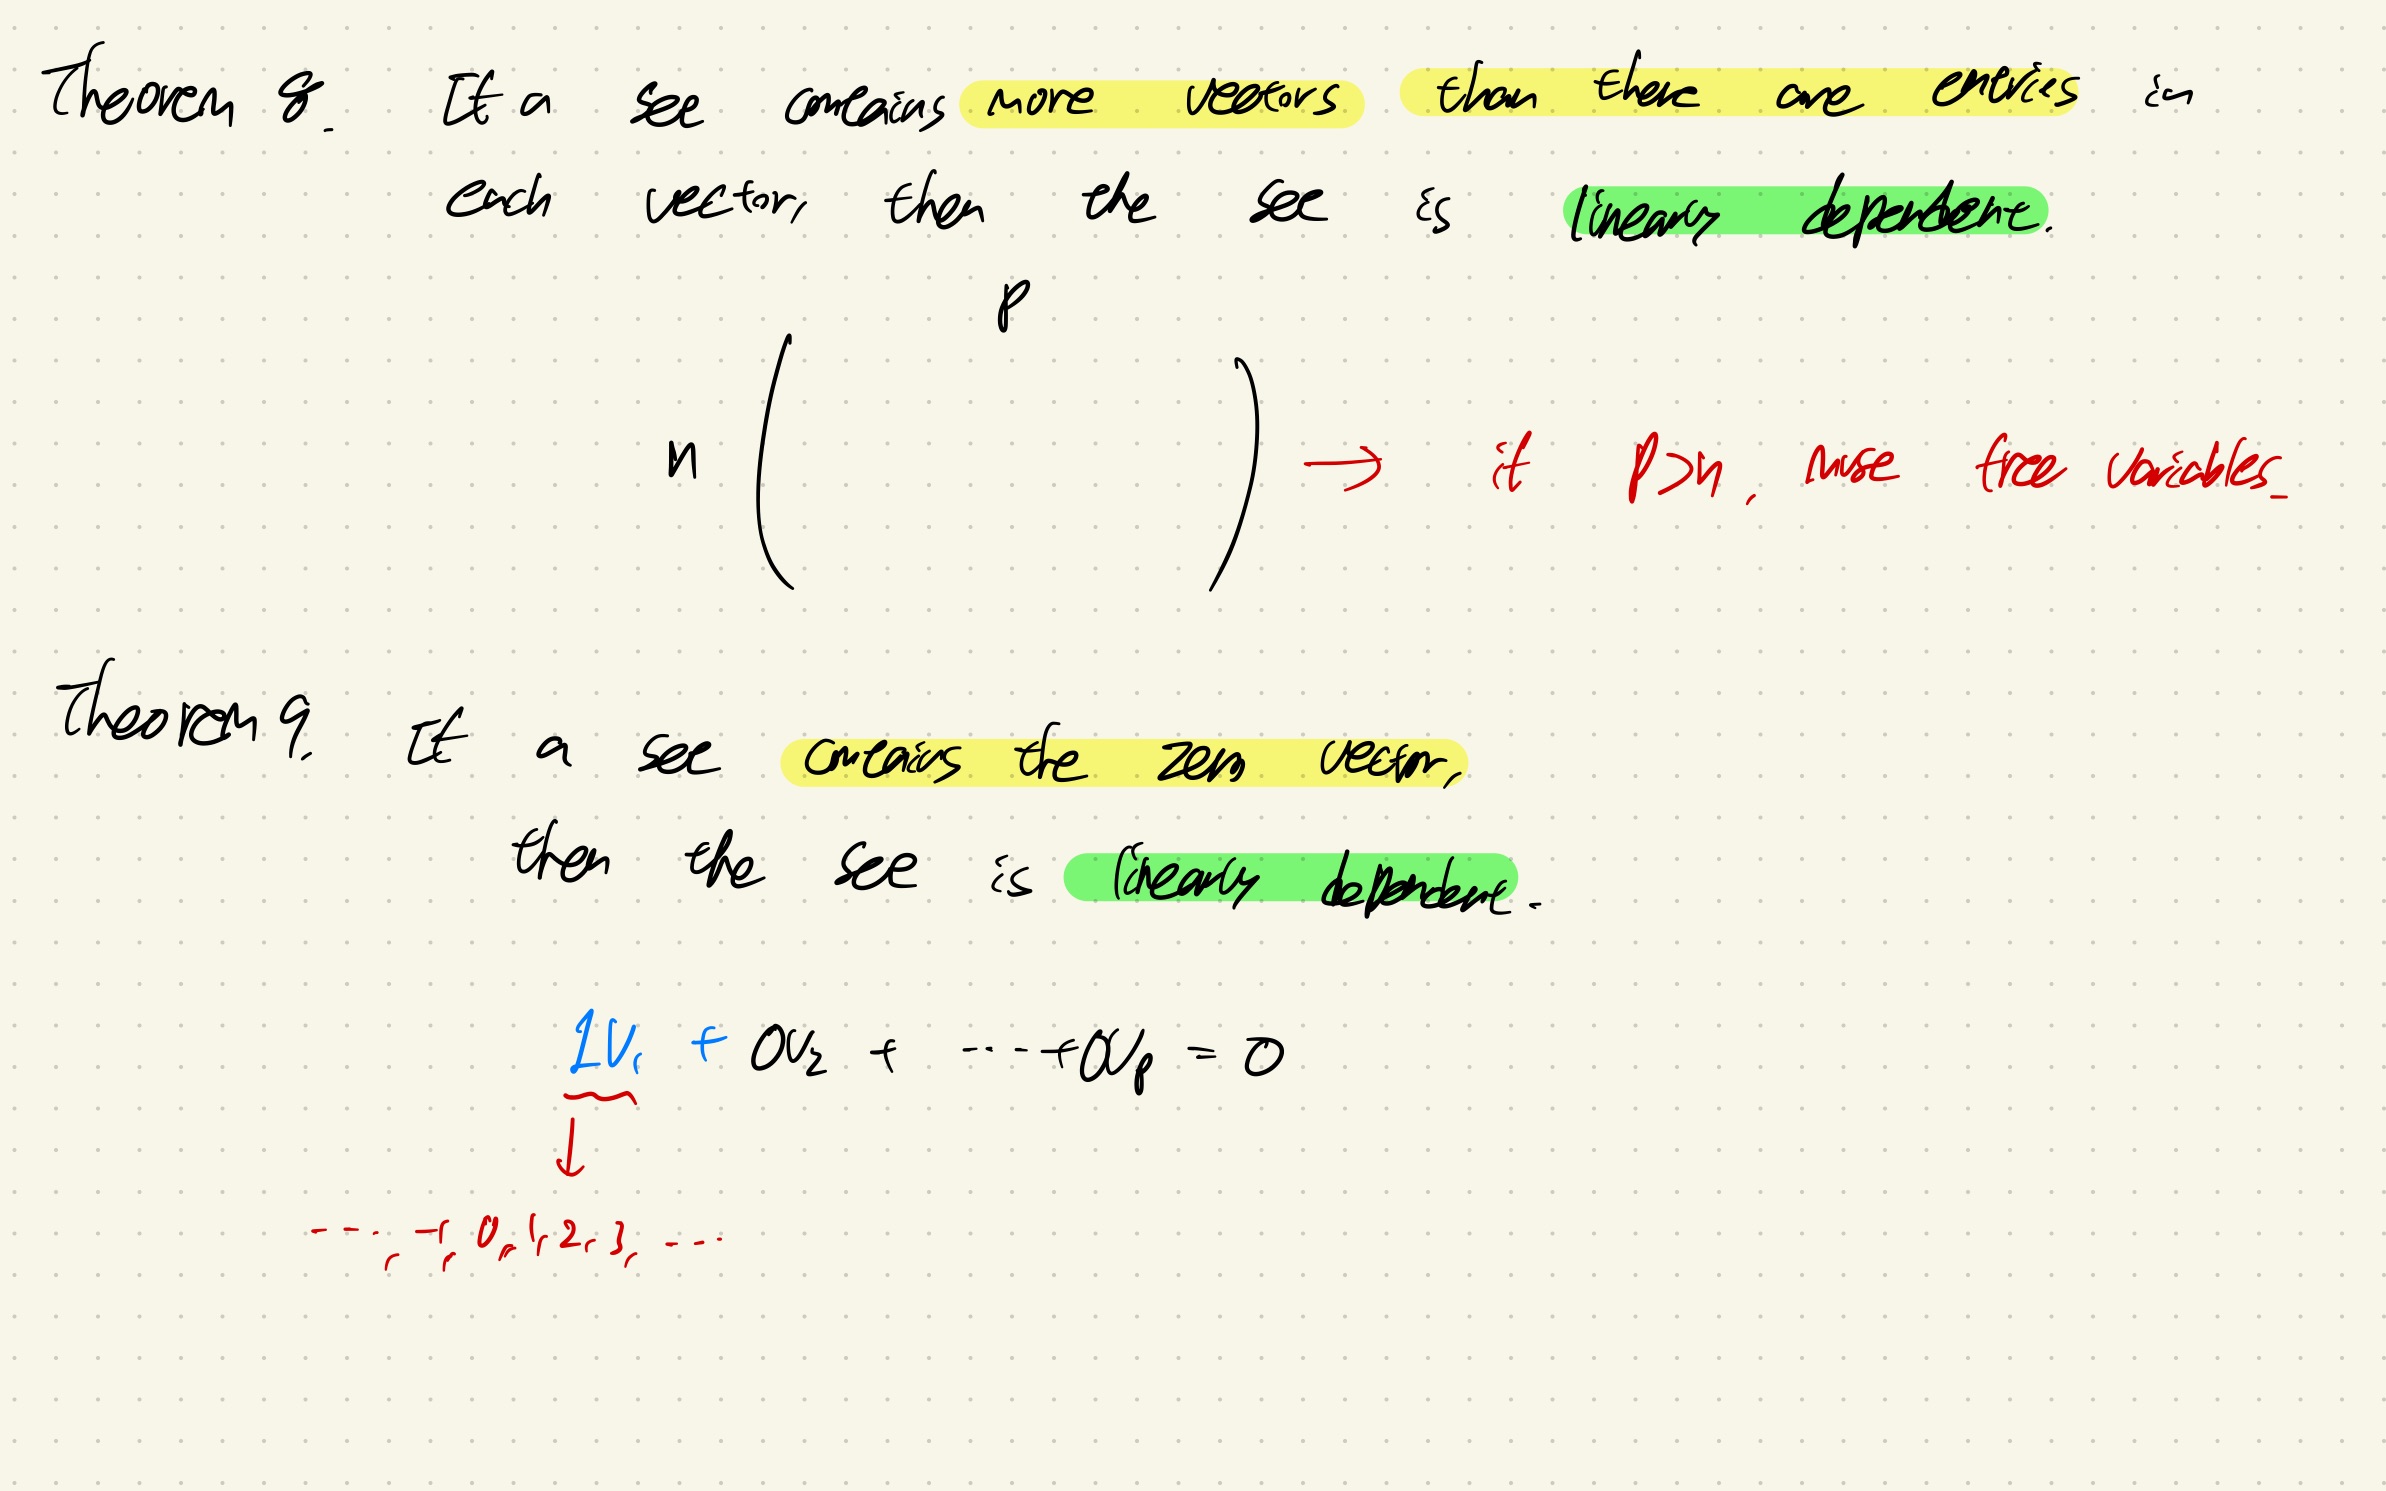 Theorem 8. If a set contains more vectors than there are entries in
each vector, then the set is linearly dependent.
p
n ( ) → if p>n, must free variables.
Theorem 9. If a set contains the zero vector,
then the set is linearly dependent.
1v₁ + 0v₂ + ---+0vₚ = 0
↓
---, -1, 0, 1, 2, 3, ---